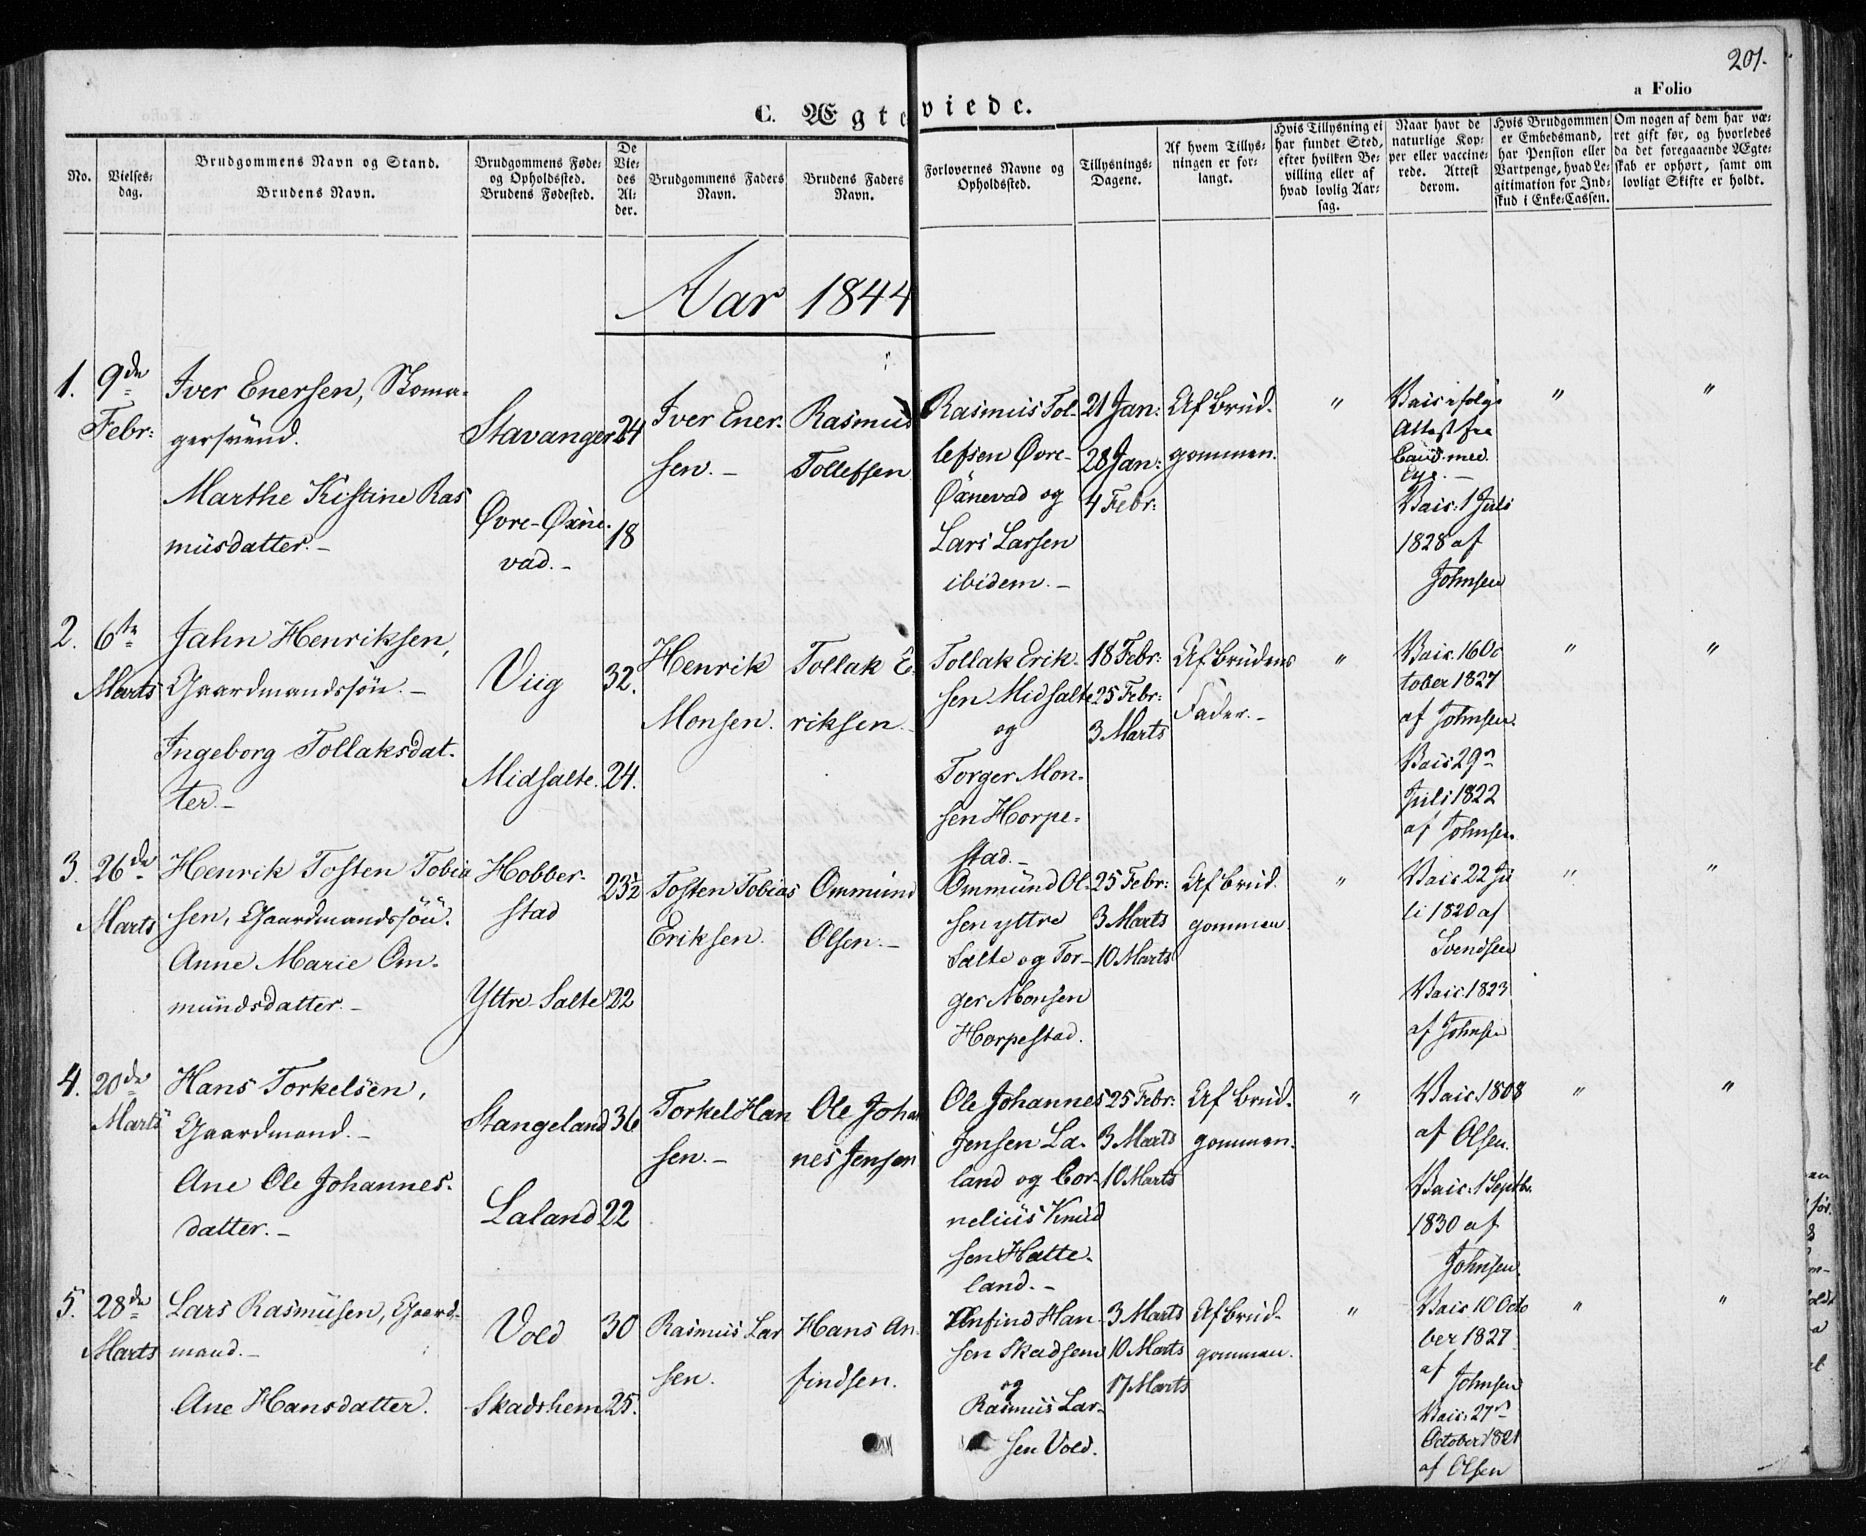 201.
a Folio
C. Ægteviede.
No.
Vielses-
dag.
Brudgommens Navn og Stand.
Brudens Navn.
Brudgommens Føde-
og Opholdssted.
Brudens Fødested.
De
Vie-
des
Al-
der.
Brudgommens Faders
Navn.
Brudens Faders
Navn.
Forlovernes Navne og
Opholdssted.
Tillysnings-
Dagene.
Af hvem Tillys-
ningen er for-
langt.
Hvis Tillysning ei
har fundet Sted,
efter hvilken Be-
villing eller af
hvad lovlig Aar-
sag.
Naar havt de
naturlige Kop-
per eller vaccine-
rede. Attest
derom.
Hvis Brudgommen
er Embedsmand,
har Pension eller
Vartpenge, hvad Le-
gitimation for Ind-
skud i Enke-Cassen.
Om nogen af dem har væ-
ret gift før, og hvorledes
da det foregaaende Ægte-
skab er ophørt, samt om
lovligt Skifte er holdt.
Aar 1844
1.
9de
Febr:
Iver Enersen, Skoma-
gersvend.
Marthe Kistine Ras
musdatter.-
Stavanger
Øvre-Øxne-
vad.-
24
18
Iver Ener-
sen.-
Rasmus
Tollefsen
Rasmus Tol-
lefsen Øvre-
Øxnevad og
Lars Larsen
ibidem.-
21 Jan:
28 Jan:
4 Febr:
Af Brud-
gommen.
"
Vaic. ifølge
Attest fra
Vaic. 1 Juli
1828 af
Johnsen
"
"
2.
6te
Marts
Jahn Henriksen,
Gaardmandssøn.-
Ingeborg Tollaksdat-
ter.-
Viig
Midsalte.
32.
24.
Henrik
Monsen.
Tollak E-
riksen.-
Tollak Erik-
sen Midsalte
og
Torger Mon-
sen Horpe-
stad.-
18 Febr:
25 Febr:
3 Marts
Af Brudens
Fader.-
"
Vaic. 16 Oc
tober 1827
af Johnsen.
Vaic 29n
Juli 1822
af Johnsen
"
"
3.
26de
Marts
Henrik Tosten Tobia
sen, Gaardmandssøn.
Anne Marie Om-
mundsdatter.-
Hobber-
stad
Yttre Salte
23½
22
Tosten Tobias
Eriksen.
Ommund
Olsen.-
Ommund Ol-
sen yttre
Salte og Tor-
ger Monsen
Horpestad.
25 Febr:
3 Marts
10 Marts
Af Brud-
gommen
"
Vaic 22 Ju
li 1820 af
Svendsen
Vaic. 1823
af Johnsen
"
"
4.
20de
Marts
Hans Torkelsen,
Gaardmand.-
Ane Ole Johannes-
datter.-
Stangeland
Laland
36
22
Torkel Han
sen.-
Ole Johan
nes Jensen
Ole Johannes
Jensen La-
land og Cor-
nelius Knud
sen Hatte-
land.-
25 Febr:
3 Marts
10 Marts
Af Brud-
gommen.
"
Vaic. 1808
af Olsen.
Vaic. 1 Septb.
1830 af
Johnsen.
"
"
5.
28de
Marts
Lars Rasmusen, Gaard-
mand.-
Ane Hansdatter.
Vold
Skadshem
30
25.
Rasmus Lar
sen.
Hans An-
findsen.
Anfind Han-
sen Skadsem
og
Rasmus Lar-
sen Vold.
3 Marts
10 Marts
17 Marts
Af Brud-
gommen.
"
Vaic 10 Octo
ber 1827
af Johnsen
Vaic. 27n
October 1821
af Olsen
"
"